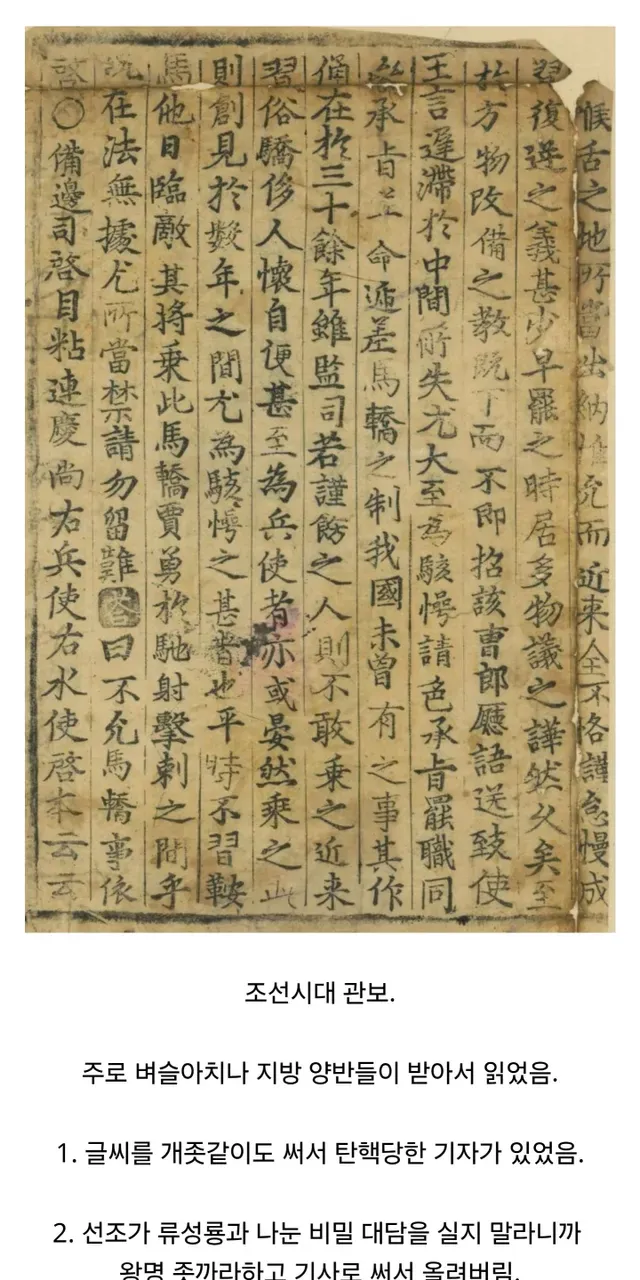 喉舌之地所當出納惟允而近來全不恪謹怠慢成
習復逆之義甚少早罷之時居多物議之譁然久矣至
於方物改備之教既下而不即招該曹郎廳語送致使
王言遲滯於中間所失尤大至為駭愕請色承旨罷職同
承旨並命遞差馬轎之制我國未曾有之事其作
俑在於三十餘年雖監司若謹飭之人則不敢乘之近來
習俗驕侈人懷自便甚至為兵使者亦或晏然乘之此
則創見於數年之間尤為駭愕之甚者也平時不習鞍
馬他日臨敵其將乘此馬轎賈勇於馳射擊刺之間乎
既在法無據尤所當禁請勿留難答曰不允馬轎事依
啓○備邊司啓目粘連慶尙右兵使右水使啓本云云
조선시대 관보.
주로 벼슬아치나 지방 양반들이 받아서 읽었음.
1. 글씨를 개좆같이도 써서 탄핵당한 기자가 있었음.
2. 선조가 류성룡과 나눈 비밀 대담을 실지 말라니까
왕명 좆까라하고 기사로 써서 올려버림.